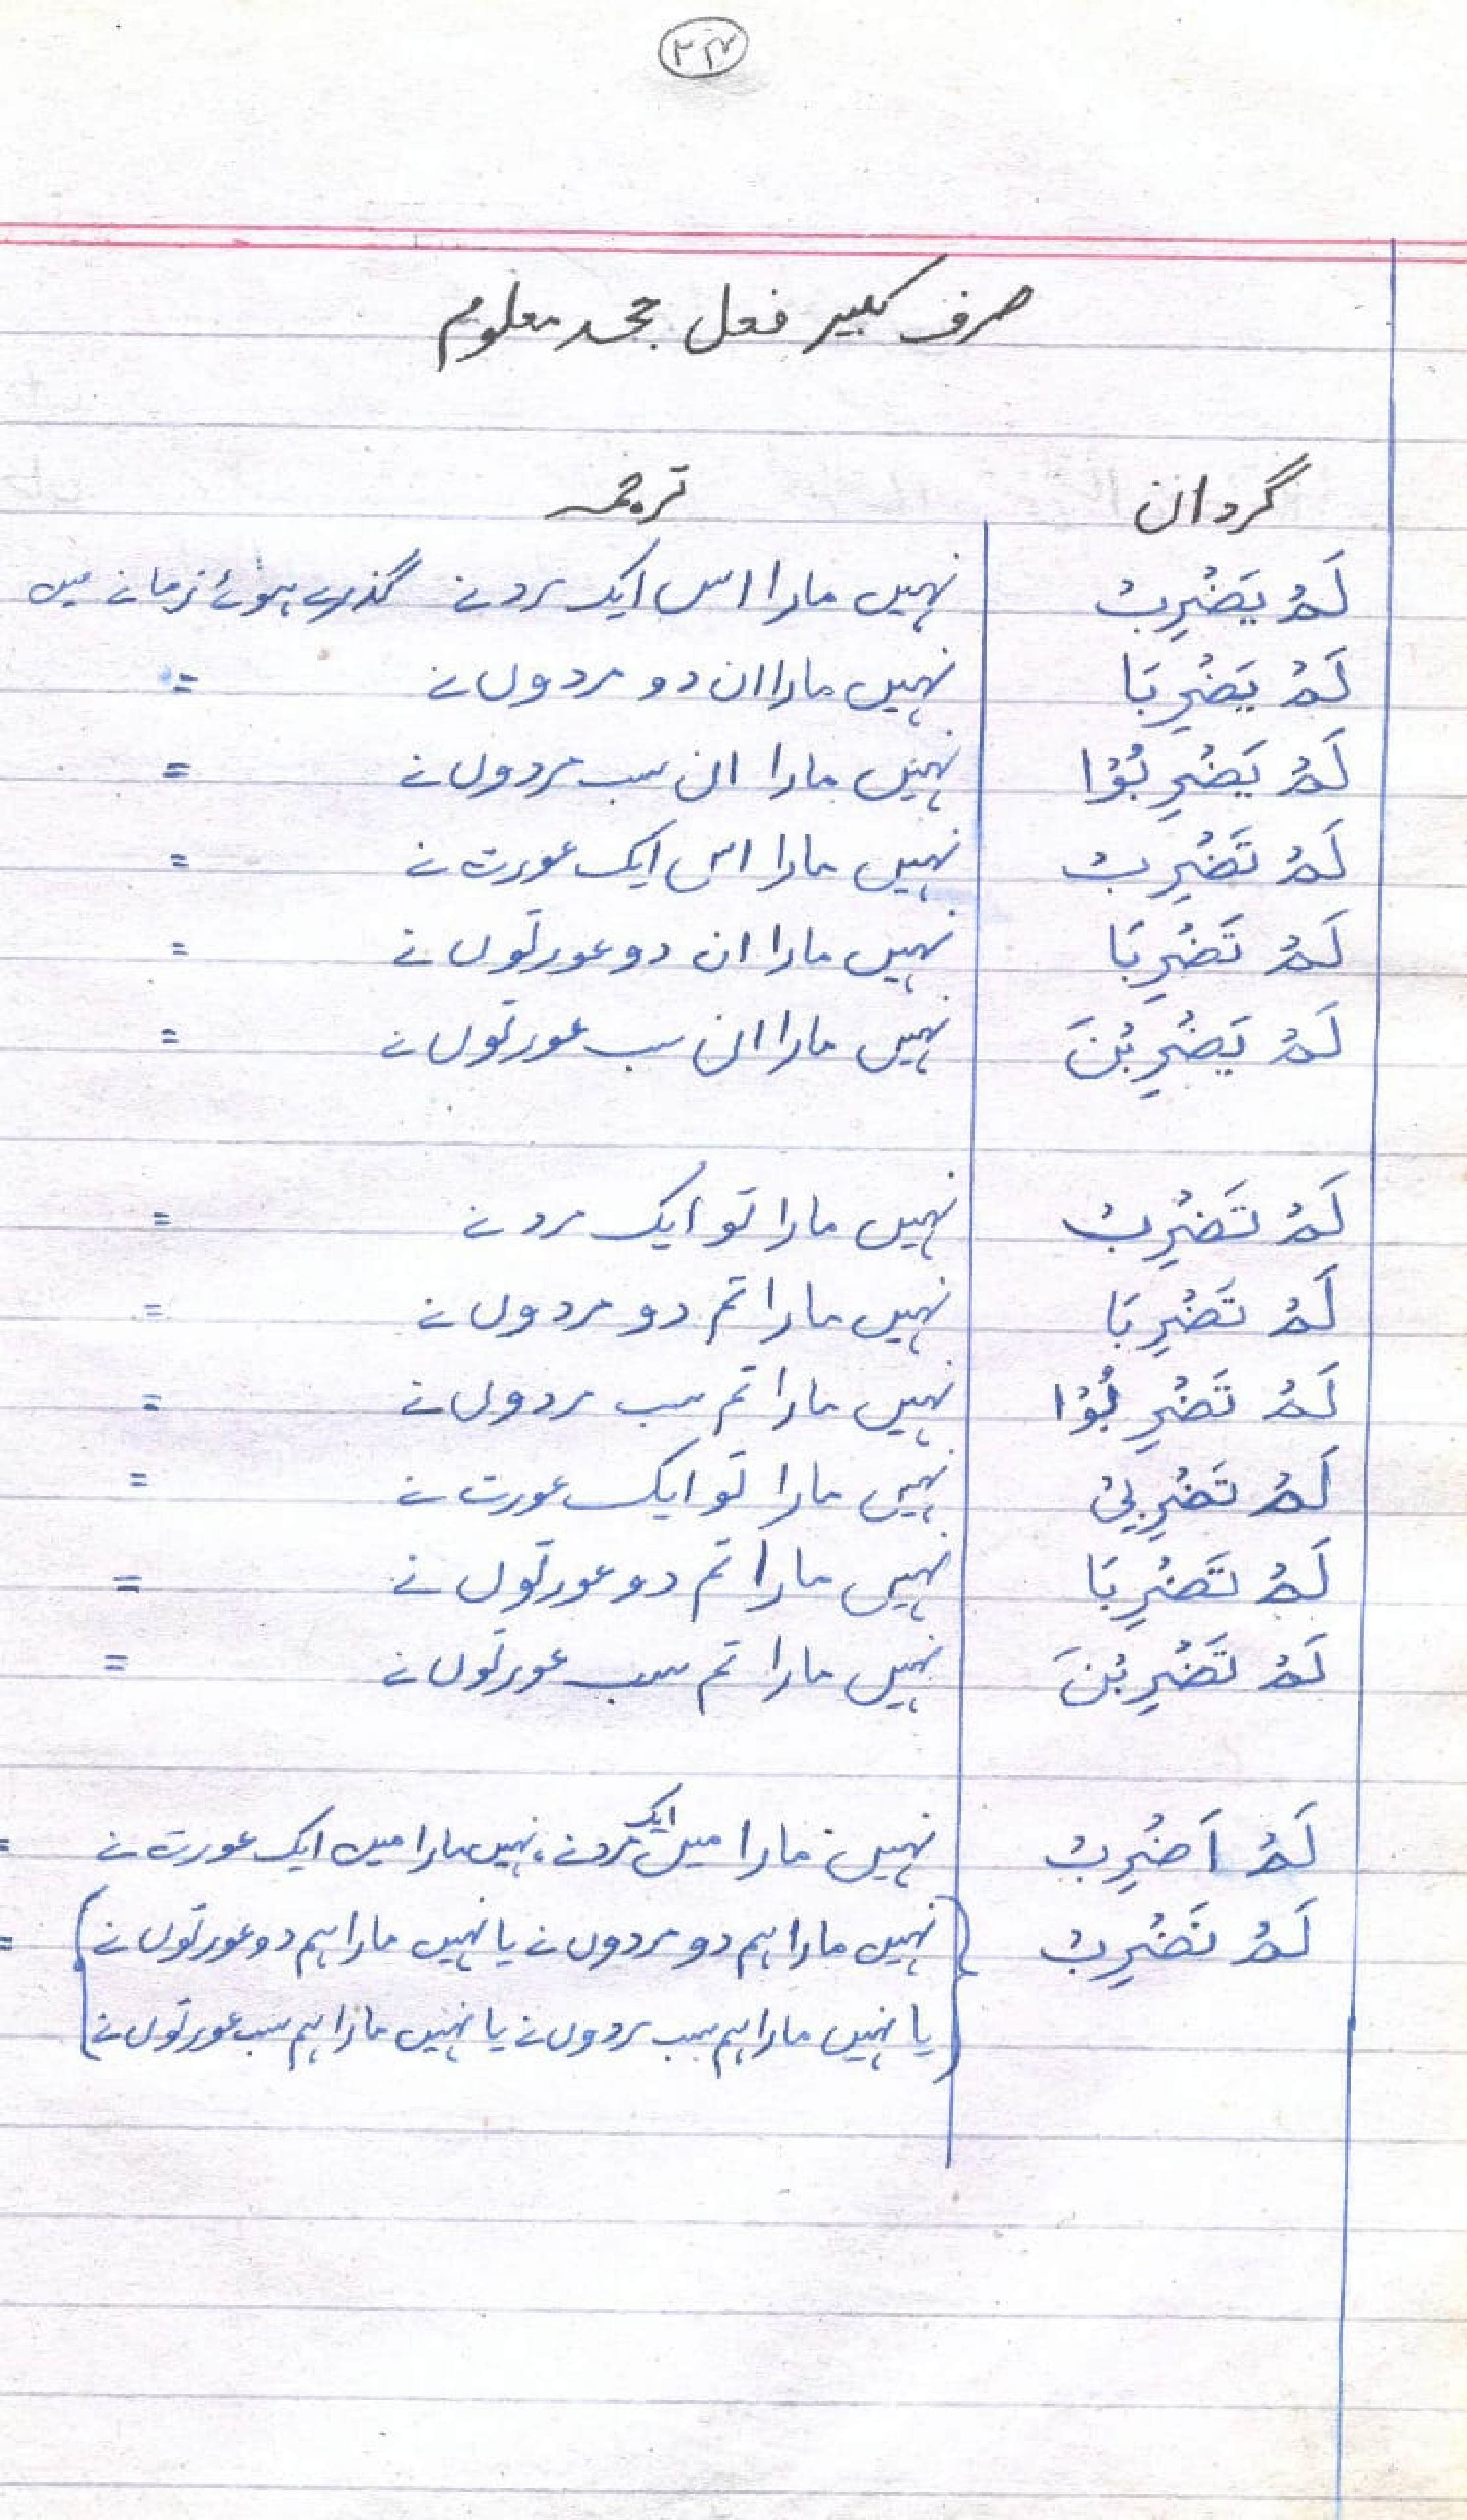 ۲۳
صرف کبیر فعل جحد معلوم
گردان ترجمہ
لَمْ يَضْرِبْ نہیں مارا اس ایک مرد نے گذرے ہوئے زمانے میں
لَمْ يَضْرِبَا نہیں مارا ان دو مردوں نے =
لَمْ يَضْرِبُوْا نہیں مارا ان سب مردوں نے =
لَمْ تَضْرِبْ نہیں مارا اس ایک عورت نے =
لَمْ تَضْرِبَا نہیں مارا ان دو عورتوں نے =
لَمْ يَضْرِبْنَ نہیں مارا ان سب عورتوں نے =
لَمْ تَضْرِبْ نہیں مارا تو ایک مرد نے =
لَمْ تَضْرِبَا نہیں مارا تم دو مردوں نے =
لَمْ تَضْرِبُوْا نہیں مارا تم سب مردوں نے =
لَمْ تَضْرِبِيْ نہیں مارا تو ایک عورت نے =
لَمْ تَضْرِبَا نہیں مارا تم دو عورتوں نے =
لَمْ تَضْرِبْنَ نہیں مارا تم سب عورتوں نے =
لَمْ اَضْرِبْ نہیں مارا میں ایک مرد نے، نہیں مارا میں ایک عورت نے =
لَمْ نَضْرِبْ {نہیں مارا ہم دو مردوں نے یا نہیں مارا ہم دو عورتوں نے} =
{یا نہیں مارا ہم سب مردوں نے یا نہیں مارا ہم سب عورتوں نے}